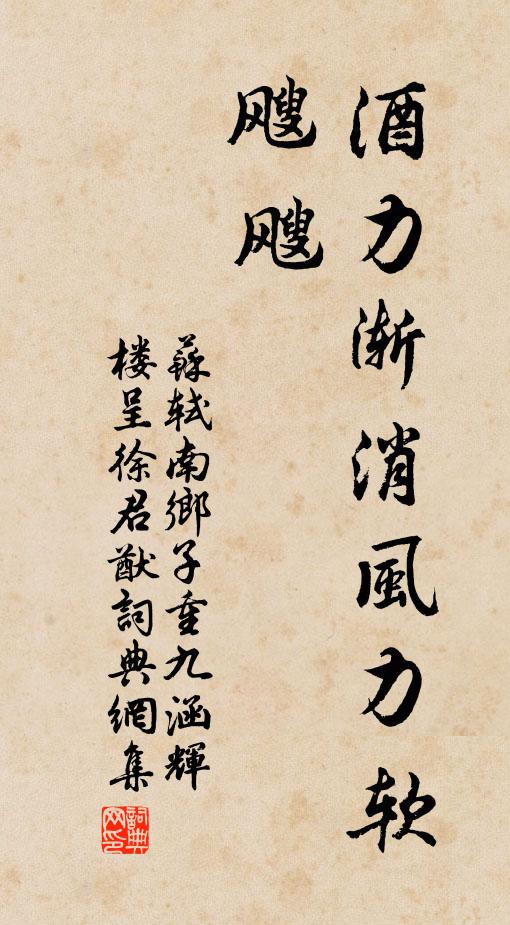 酒力渐消風力软
飕飕
蘇轼南鄉子重九涵輝
楼呈徐君猷詞典網集
詞典网印